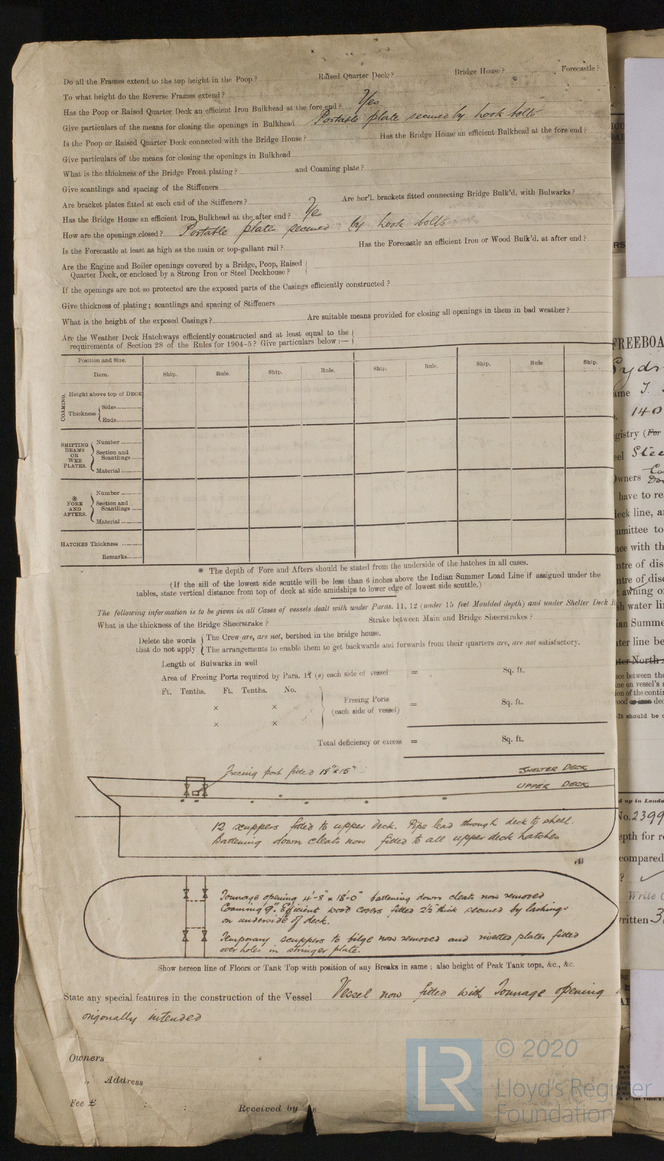 Do all the Frames extend to the top height in the Poop? Raised Quarter Deck? Bridge House? Forecastle?
To what height do the Reverse Frames extend?
Has the Poop or Raised Quarter Deck an efficient Iron Bulkhead at the fore end? Yes
Give particulars of the means for closing the openings in Bulkhead Portable plate secured by hook bolts
Is the Poop or Raised Quarter Deck connected with the Bridge House? Has the Bridge House an efficient Bulkhead at the fore end?
Give particulars of the means for closing the openings in Bulkhead
What is the thickness of the Bridge Front plating? and Coaming plate?
Give scantlings and spacing of the Stiffeners
Are bracket plates fitted at each end of the Stiffeners? Are hor'l. brackets fitted connecting Bridge Bulk'd, with Bulwarks?
Has the Bridge House an efficient Iron Bulkhead at the after end? Yes
How are the openings closed? Portable plate secured by hook bolts
Is the Forecastle at least as high as the main or top-gallant rail? Has the Forecastle an efficient Iron or Wood Bulk'd, at after end?
Are the Engine and Boiler openings covered by a Bridge, Poop, Raised
Quarter Deck, or enclosed by a Strong Iron or Steel Deckhouse?
If the openings are not so protected are the exposed parts of the Casings efficiently constructed?
Give thickness of plating; scantlings and spacing of Stiffeners
What is the height of the exposed Casings? Are suitable means provided for closing all openings in them in bad weather?
Are the Weather Deck Hatchways efficiently constructed and at least equal to the
requirements of Section 28 of the Rules for 1904-5? Give particulars below:—
Position and Size.
Item. Ship. Rule. Ship. Rule. Ship. Rule. Ship. Rule. Ship.
COAMING. Height above top of DECK
Thickness Sides
Ends
SHIFTING BEAMS OR WEB PLATES. Number
Section and Scantlings
Material
* FORE AND AFTERS. Number
Section and Scantlings
Material
HATCHES Thickness
Remarks
* The depth of Fore and Afters should be stated from the underside of the hatches in all cases.
(If the sill of the lowest side scuttle will be less than 6 inches above the Indian Summer Load Line if assigned under the
tables, state vertical distance from top of deck at side amidships to lower edge of lowest side scuttle.)
The following information is to be given in all Cases of vessels dealt with under Paras. 11, 12 (under 15 feet Moulded depth) and under Shelter Deck
What is the thickness of the Bridge Sheerstrake? Strake between Main and Bridge Sheerstrakes?
Delete the words that do not apply The Crew are, are not, berthed in the bridge house.
The arrangements to enable them to get backwards and forwards from their quarters are, are not satisfactory.
Length of Bulwarks in well
Area of Freeing Ports required by Para. (e) each side of vessel = Sq. ft.
Ft. Tenths. Ft. Tenths. No.
× × Freeing Ports (each side of vessel) = Sq. ft.
× ×
Total deficiency or excess = Sq. ft.
Freeing port fitted 18"x15"
SHELTER DECK
UPPER DECK
12 scuppers fitted to upper deck. Pipe lead through deck to
Battening down cleats now fitted to all upper deck hatches
Tonnage opening 4'-8" x 18'-0" battening down cleats now removed
Coaming 9". Efficient wood covers fitted 2½" thick secured by lashings
on underside of deck.
Temporary scuppers to bilge now removed and riveted plates fitted
over holes in stringer plate.
Show hereon line of Floors or Tank Top with position of any Breaks in same; also height of Peak Tank tops, &c., &c.
State any special features in the construction of the Vessel Vessel now fitted with Tonnage opening
originally intended
Owners
,, Address
Fee £
Received by
LR © 2020
Lloyd's Register
Foundation